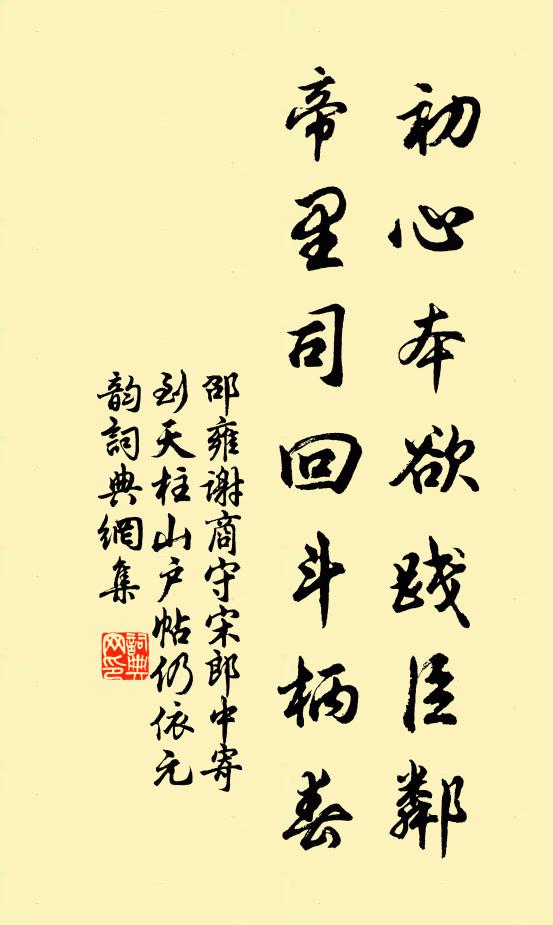 初心本欲践臣鄰
帝里司回斗柄春
邵雍谢商守宋郎中寄
到天柱山户帖仍依元
韵詞典網集
詞典網印